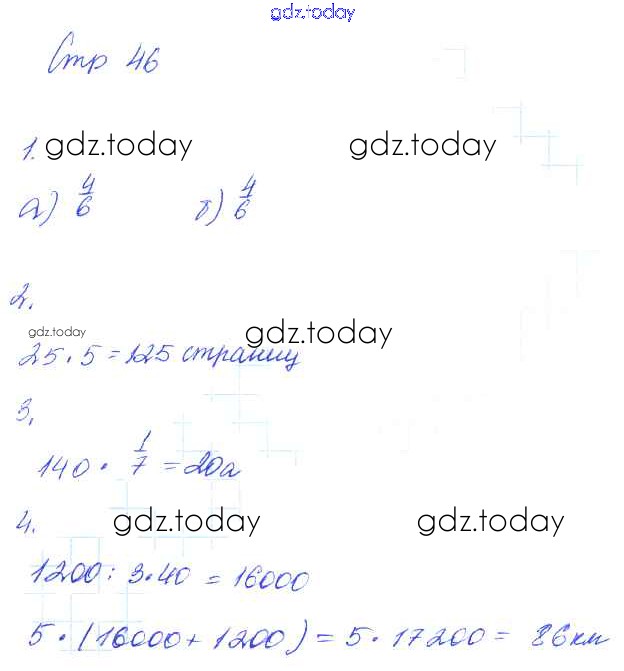 gdz.today
Стр 46
1. gdz.today gdz.today
а) 4/6 б) 4/6
2.
gdz.today gdz.today
25 · 5 = 125 страниц
3.
140 · 1/7 = 20а
4. gdz.today gdz.today
1200 : 3 · 40 = 16000
5 · (16000 + 1200) = 5 · 17200 = 86км